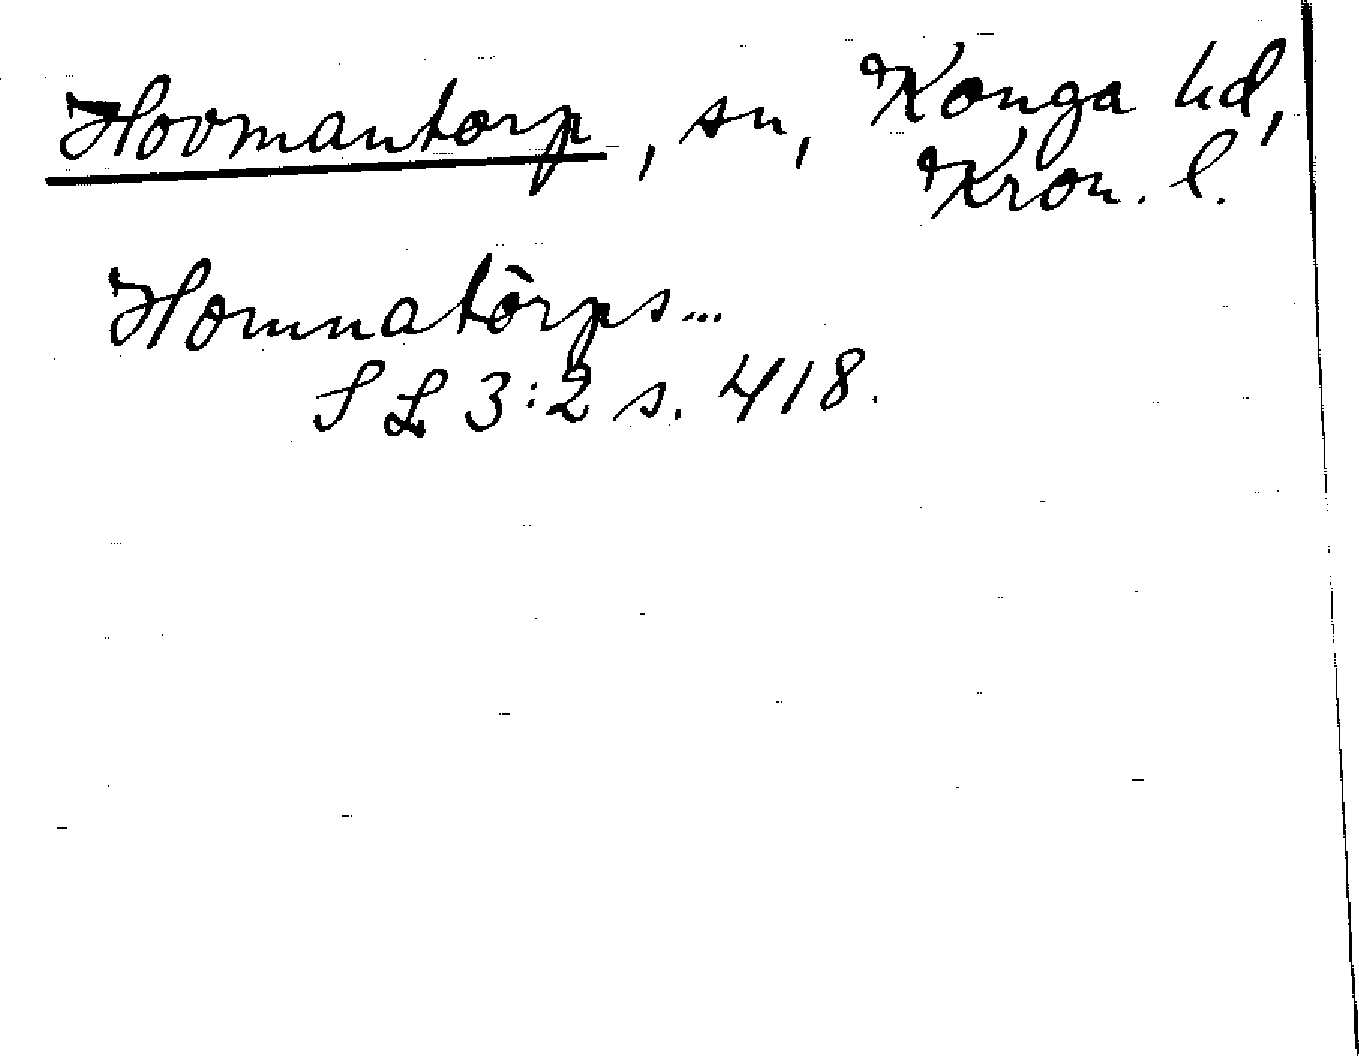 Hovmantorp, sn, Konga hd,
Kron. l.
Homnatòrps...
S L 3:2 s. 418.